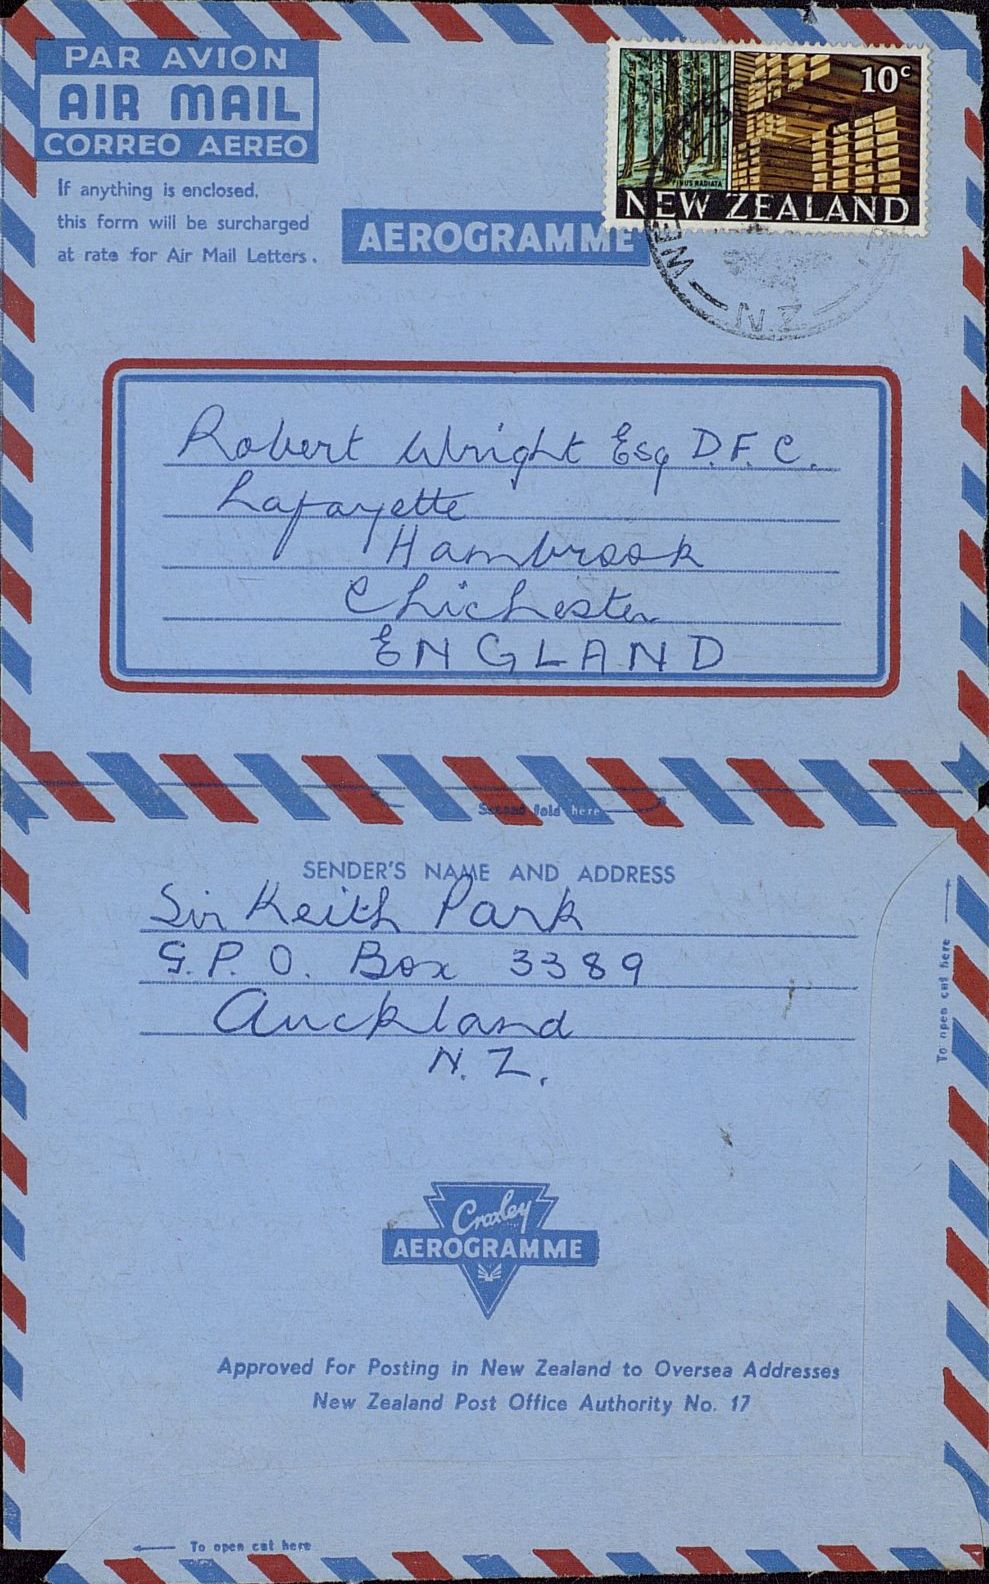 PAR AVION
AIR MAIL
CORREO AEREO
If anything is enclosed,
this form will be surcharged
at rate for Air Mail Letters.
AEROGRAMME
10c
PINUS RADIATA
NEW ZEALAND
N.Z
Robert Wright Esq D.F.C.
Lafayette
Hambrook
Chichester
ENGLAND
Second fold here
SENDER'S NAME AND ADDRESS
Sir Keith Park
G.P.O. Box 3389
Auckland
N.Z.
To open cut here
Croxley
AEROGRAMME
Approved For Posting in New Zealand to Oversea Addresses
New Zealand Post Office Authority No. 17
To open cut here